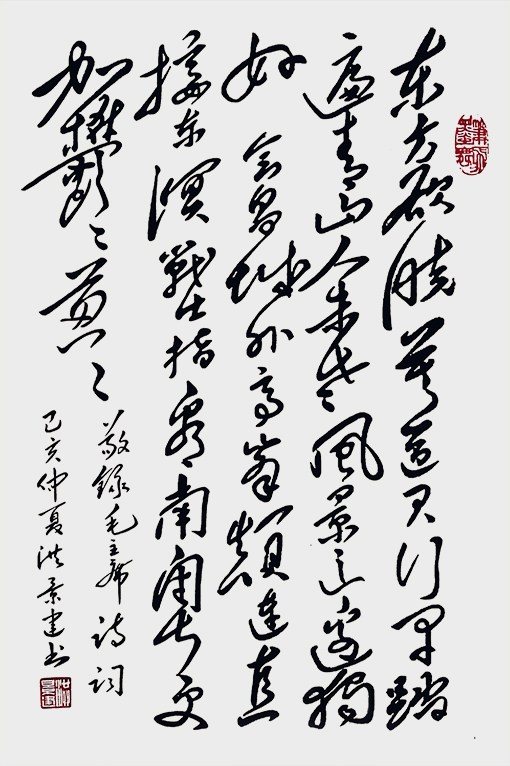 东方欲晓莫道君行早踏
遍青山人未老风景这边独
好 会昌城外高峰颠连直
接东溟戰士指看南粤更
加鬱〻葱〻
敬録毛主席诗词
己亥仲夏洪景建书